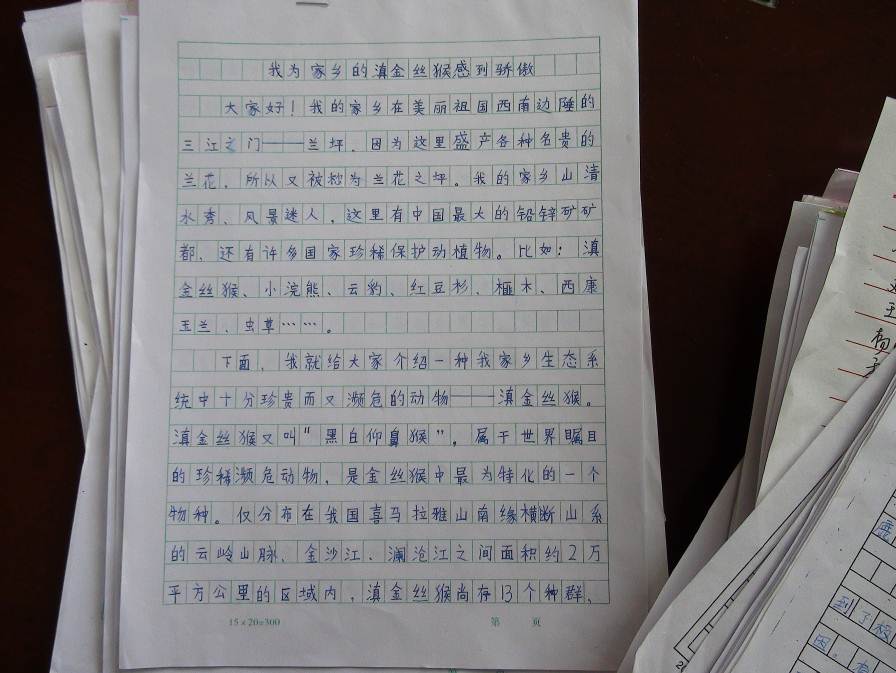 我为家乡的滇金丝猴感到骄傲
大家好！我的家乡在美丽祖国西南边陲的
三江之门——兰坪。因为这里盛产各种名贵的
兰花，所以又被称为兰花之坪。我的家乡山清
水秀、风景迷人，这里有中国最大的铅锌矿矿
都、还有许多国家珍稀保护动植物。比如：滇
金丝猴、小浣熊、云豹、红豆杉、榧木、西康
玉兰、虫草……。
下面，我就给大家介绍一种我家乡生态系
统中十分珍贵而又濒危的动物——滇金丝猴。
滇金丝猴又叫“黑白仰鼻猴”。属于世界瞩目
的珍稀濒危动物，是金丝猴中最为特化的一个
物种。仅分布在我国喜马拉雅山南缘横断山系
的云岭山脉、金沙江、澜沧江之间面积约2万
平方公里的区域内，滇金丝猴尚存13个种群、
15×20=300 第 页
到了极
因。